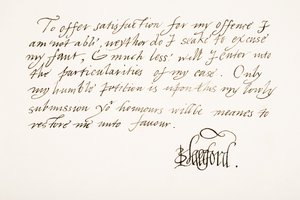 To offer satisfaction for my offence I
am not able, neyther do I seake to excuse
my faut, & much less will I enter into
the particularities of my case. Only
my humble petition is upon this my lowly
submission yor honnours wilbe meanes to
restore me unto favour.